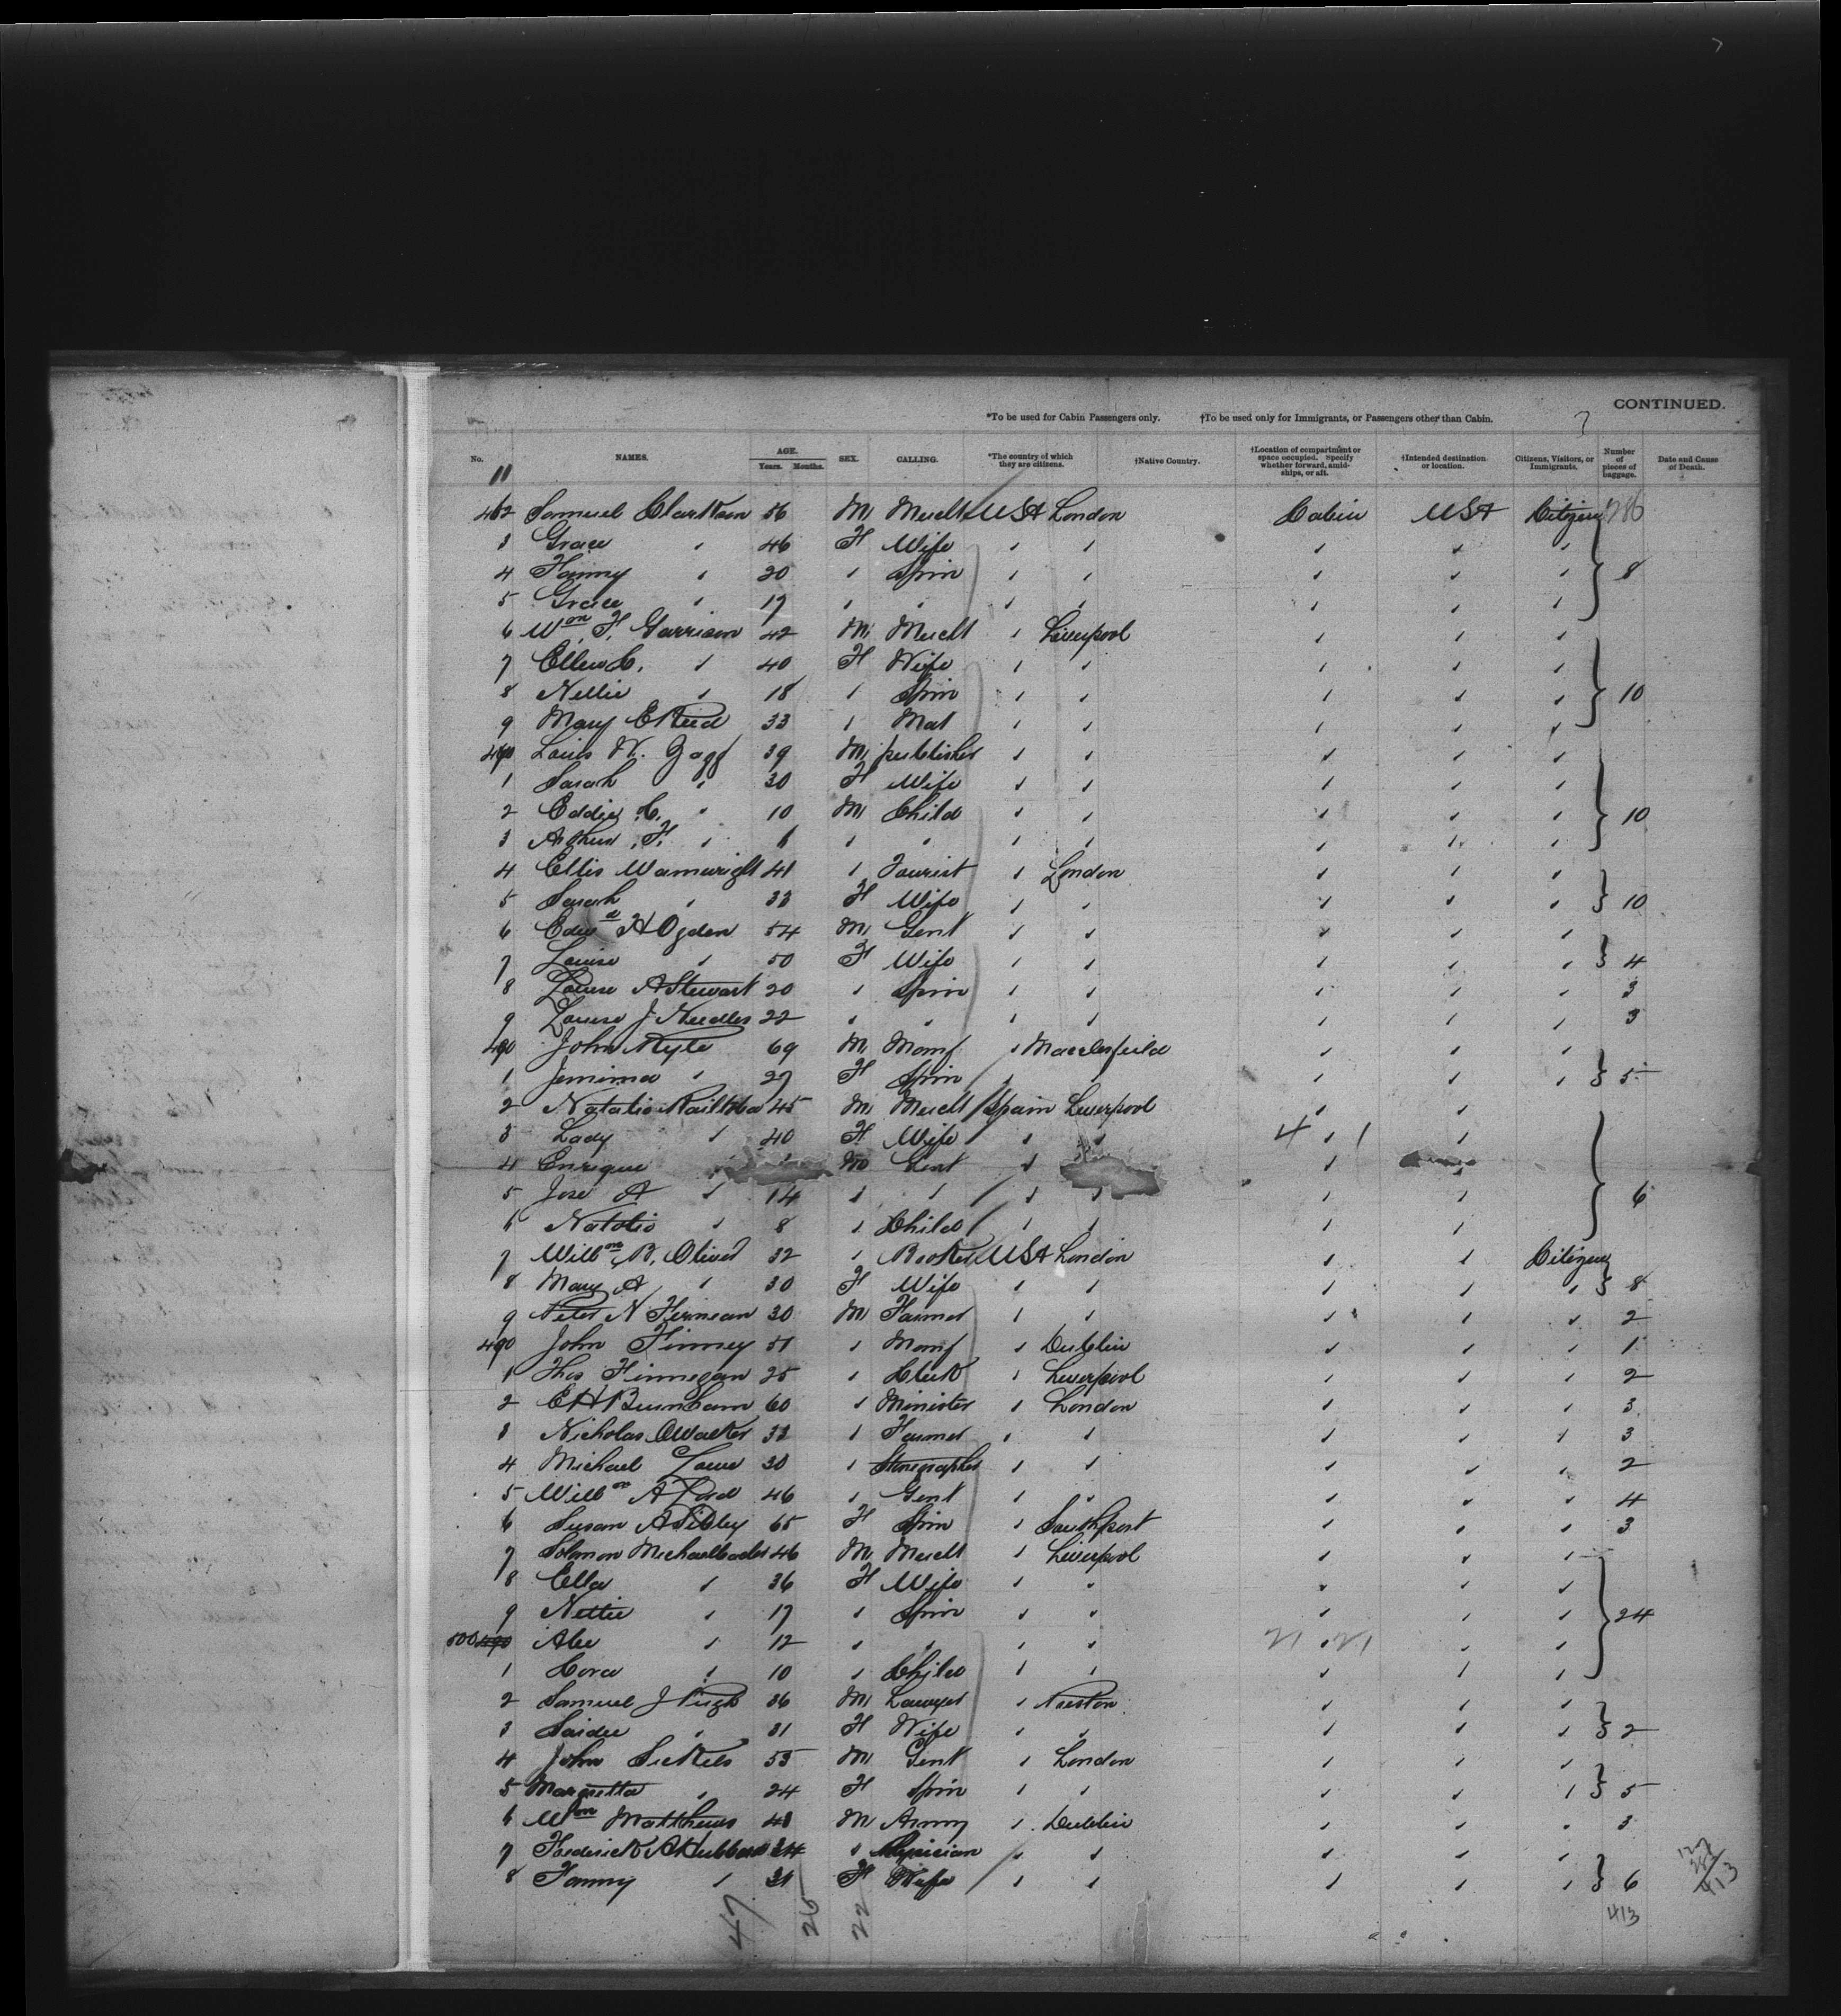 CONTINUED.
*To be used for Cabin Passengers only. †To be used only for Immigrants, or Passengers other than Cabin.
No. NAMES. AGE. Years. Months. SEX. CALLING. *The country of which they are citizens. †Native Country. †Location of compartment or space occupied. Specify whether forward, amidships, or aft. †Intended destination or location. Citizens, Visitors, or Immigrants. Number of pieces of baggage. Date and Cause of Death.
11
462 Samuel Clarkson 56 M Merch USA London Cabin USA Citizens 286
3 Grace " 46 F Wife " " " " "
4 Fanny " 20 " Spin " " " " " 8
5 Grace " 17 " " " " " " "
6 Wm F. Garrison 42 M Merch " Liverpool " " "
7 Ellen C. " 40 F Wife " " " " "
8 Nellie " 18 " Spin " " " " " 10
9 Mary E Reid 33 " Mat " " " " "
Louis W. 39 M publisher " " " " "
1 Sarah " 30 F Wife " " " " "
2 Eddie C. " 10 M Child " " " " " 10
3 Arthur F. " 6 " " " " " " "
4 Ellis Wainwright 41 " Tourist " London " " "
5 Sarah " 33 F Wife " " " " " 10
6 Edwd H Ogden 54 M Gent " " " " "
7 Louise " 50 F Wife " " " " " 4
8 Louise A Stewart 20 " Spin " " " " " 3
9 Louise J Needles 22 " " " " " " " 3
490 John Ryle 69 M Manf " Macclesfield " " "
1 Jemima " 27 F Spin " " " " " 5
2 Natalio 45 M Merch Spain Liverpool " "
3 Lady " 40 F Wife " " 4 " 1 "
4 Enrique " M Gent " " "
5 Jose A " 14 " " " " " " 6
6 Natalio " 8 " Child " " " "
7 Willm B. Oliver 32 " Broker USA London " " Citizens
8 Mary A " 30 F Wife " " " " " 8
9 Peter N 30 M Farmer " " " " " 2
490 John Finney 51 " Manf " Dublin " " " 1
1 Thos Finnegan 25 " Clerk " Liverpool " " " 2
2 E H Burnham 60 " Minister " London " " " 3
3 Nicholas Walker 33 " Farmer " " " " " 3
4 Michael Lowe 30 " Stenographer " " " " " 2
5 Willm A Ford 46 " Gent " " " " " 4
6 Susan A Sibley 65 F Spin " Southport " " " 3
7 Solomon 46 M Merch " Liverpool " " "
8 Ella " 36 F Wife " " " " "
9 Nettie " 17 " Spin " " " " " 24
500 490 " 12 " " " " 21 " 21 " "
1 Cora " 10 " Child " " " " "
2 Samuel J Pugh 36 M Lawyer " Preston " " "
3 Saidee " 31 F Wife " " " " " 2
4 John Sickels 55 M Gent " London " " "
5 Marietta " 24 F Spin " " " " " 5
6 Wm Matthews 43 M Army " Dublin " " " 3
7 Frederick A Hubbard 34 " Physician " " " " "
8 Fanny " 31 F Wife " " " " " 6
413
47 25 22
127
286
413